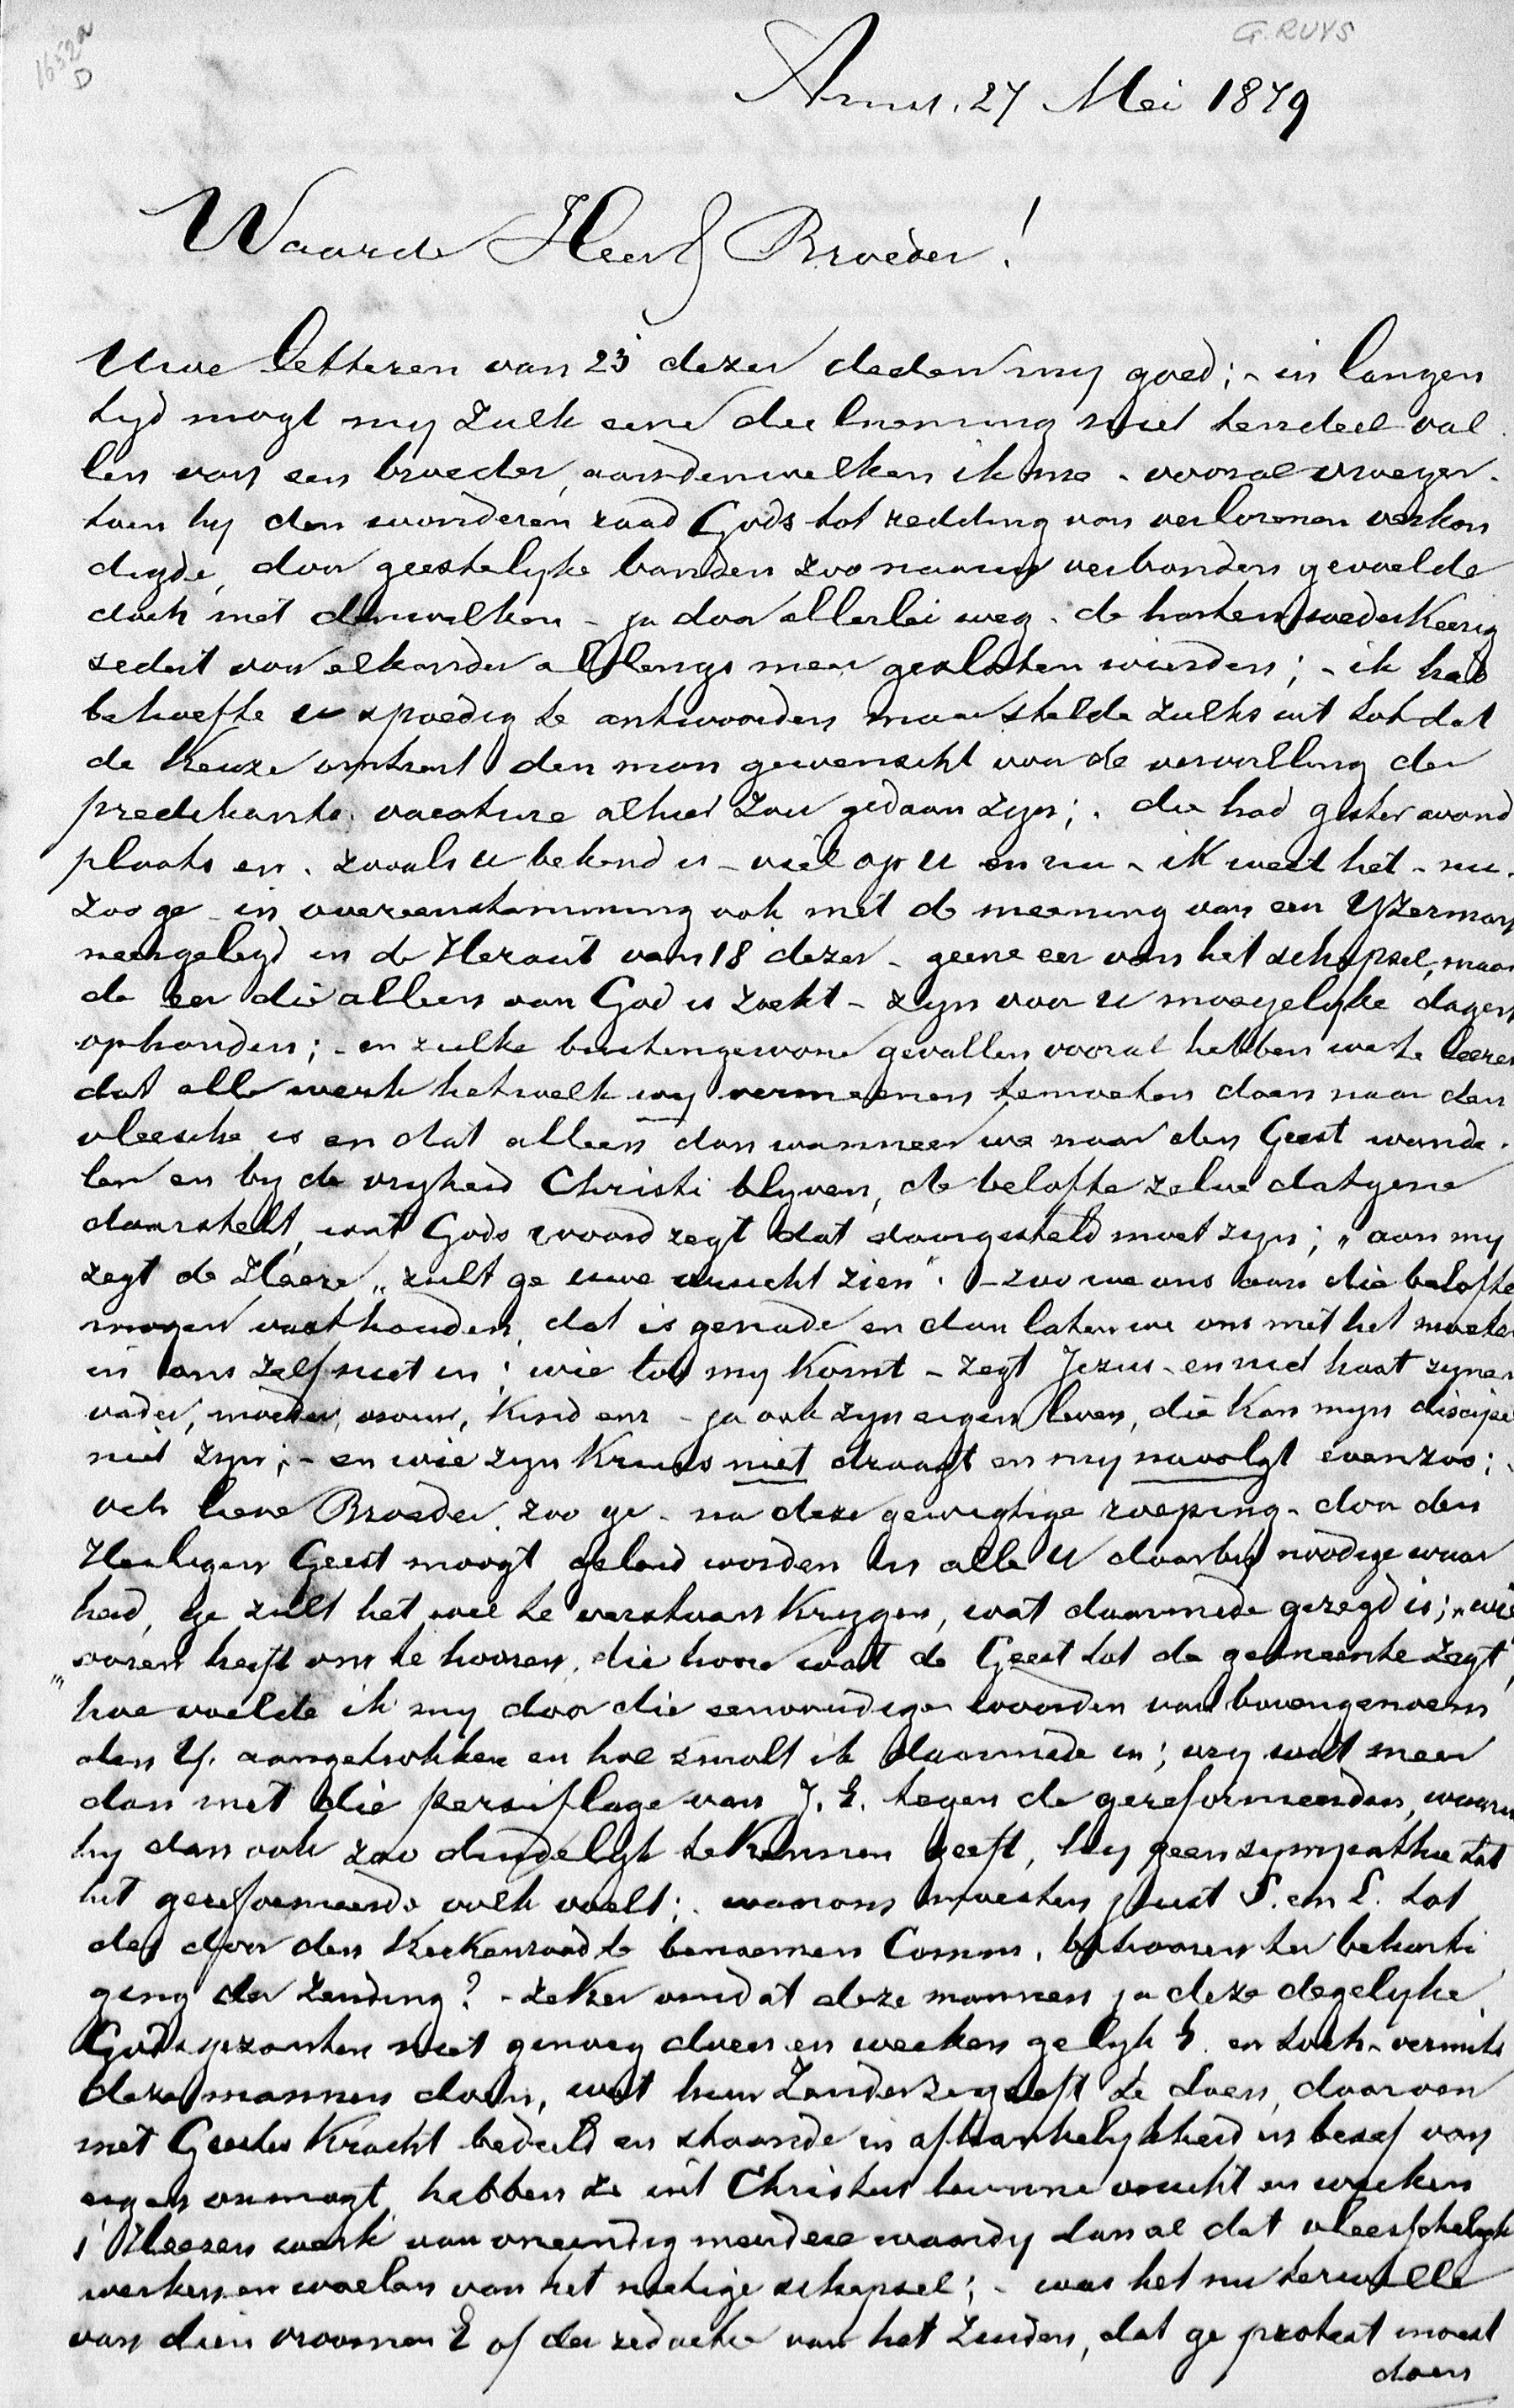 1652a
D
G. RUYS
Amst. 27 Mei 1879
Waarde Heer & Broeder!
Uwe letteren van 23 dezer deden my goed; - in langen
tyd mogt my zulk eene deelneming niet tendeel val
len van een broeder, aan denwelken ik me - vooral vroeger -
toen hy den wonderen raad Gods tot redding van verlorenen verkon
digde, door geestelyke banden zoo naauw verbonden gevoelde
doch met denwelken - ja door allerlei weg - de harten wederkeerig
sedert van elkander allengs meer gesloten wierden; - ik had
behoefte u spoedig te antwoorden maar stelde zulks uit totdat
de keuze omtrent den man gewenscht voor de vervulling der
predikants vacature alhier zou gedaan zyn; - die had gister avond
plaats en - zooals u bekend is - viel op u en nu - ik weet het - nu -
zoo ge - in overeenstemming ook met de meening van een Yzerman
neergelegd in de Heraut van 18 dezer - geene eer van het schepsel, maar
de eer die alleen van God is zoekt - zyn voor u moeyelyke dagen
ophanden; - en zulke buitengewone gevallen vooral hebben we te leeren
dat alle werk hetwelk wy vermeenen temoeten doen naar den
vleesche is en dat alleen dan wanneer we naar den Geest wande -
len en by de vryheid Christi blyven, de belofte zelve datgene
daarstelt, wat Gods woord zegt dat daargesteld moet zyn; „aan my
zegt de Heere „zult ge uwe vrucht zien". - zoo we ons aan die belofte
mogen vasthouden, dat is genade en dan laten we ons met het moeten
in ons zelf niet in; wie tot my komt - zegt Jezus - en niet haat zynen
vader, moeder, vrouw, kind enz - ja ook zyn eigen leven, die kan myn discipel
niet zyn; - en wie zyn kruis niet draagt en my navolgt evenzoo; -
och lieve Broeder, zoo ge - na deze gewigtige roeping - door den
Heiligen Geest moogt geleid worden in alle u daarby noodige waar
heid, ge zult het wel te verstaan krygen, wat daarmede gezegd is; „wie
„ooren heeft om te hooren, die hoore wat de Geest tot de gemeente zegt"
hoe voelde ik my door die eenvoudige woorden van bovengenoem
den Y. aangetrokken en hoe smolt ik daarmede in; vry wat meer
dan met die persiflage van J. E. tegen de gereformeerden, waarin
hy dan ook zoo duidelyk te kennen geeft, hy geen sympathie tot
het gereformeerde volk voelt; - waarom moesten juist S. en L. tot
de door den Kerkenraad te benoemen Comm. behooren ter beharti
ging der Zending? - zeker omdat deze mannen ja deze degelyke
Godsgezanten niet genoeg doen en werken gelyk h. en toch - vermits
deze mannen doen, wat hun Zender ze geeft te doen, daarvan
met Geestes kracht bedeeld en staande in afhankelykheid in besef van
eigen onmagt, hebben ze uit Christus hunne vrucht en werken
's Heeren werk van oneindig meerdere waardy dan al dat vleeschelyk
werken en woelen van het nietige schepsel; - was het nu terwille
van dien vroomen E of der redactie van het Zuiden, dat ge protest moest
doen